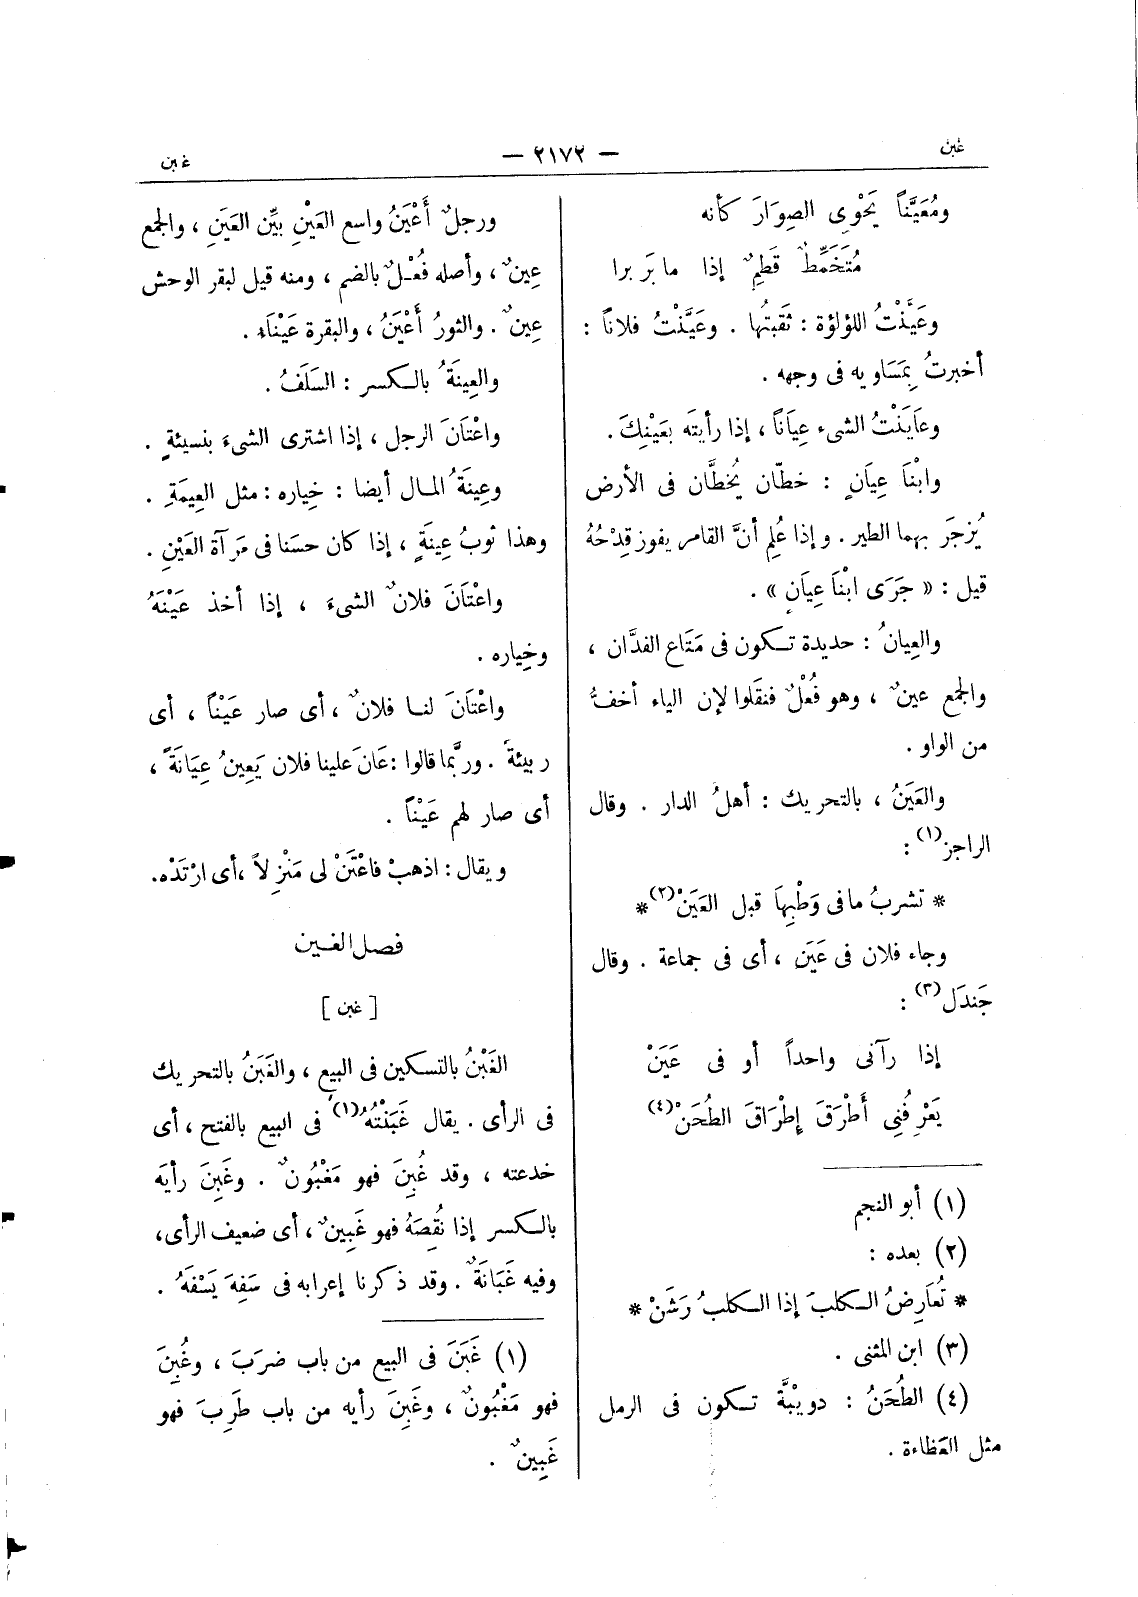 غبن
— ٢١٧٢ —
غبن
ومُعَيَّناً يَحْوِى الصِوَارَ كأنه
مُتَخَمِّطٌ قَطِمٌ إذا ما بَرْبرا
وعَيَّنْتُ اللؤلؤة : ثقبتُها . وعَيَّنْتُ فلاناً :
أخبرتُ بِمَسَاويه فى وجهه .
وعَايَنْتُ الشىء عِيَاناً ، إذا رأيتَه بعَيْنِكَ .
وابْنَا عِيَانٍ : خطّان يُخطَّان فى الأرض
يُزجَر بهما الطير . وإذا عُلِم أنَّ القامر يفوز قِدْحُهُ
قيل : « جَرَى ابْنَا عِيَانٍ » .
والعِيانُ : حديدة تـكون فى مَتَاع الفدَّان ،
والجمع عينٌ ، وهو فُعْلٌ فنقَلوا لإن الياء أخفُّ
من الواو .
والعَيَنُ ، بالتحريك : أهلُ الدار . وقال
الراجز(١) :
* تشربُ مافى وَطْبِهَا قبل العَيَنْ(٢) *
وجاء فلان فى عَيَنٍ ، أى فى جماعة . وقال
جَندَل(٣) :
إذا رآنى واحداً أو فى عَيَنْ
يَعْرِفُنِى أَطْرَقَ إِطْرَاقَ الطُحَنْ(٤)
(١) أبو النجم
(٢) بعده :
* تُعاَرِضُ الـكلبَ إذا الـكلبُ رَشَنْ *
(٣) ابن المثنى .
(٤) الطُحَنُ : دويْبَّة تـكون فى الرمل
مثل العظاءة .
ورجلٌ أَعْيَنُ واسع العَيْنِ بيِّن العَيَنِ ، والجمع
عِينٌ ، وأصله فُعْـلٌ بالضم ، ومنه قيل لبقر الوحش
عِينٌ . والثورُ أَعْيَنُ ، والبقرة عَيْنَاء .
والعِينَةُ بالـكسر : السَلَفُ .
واعْتَانَ الرجل ، إذا اشترى الشىءَ بنسيئةٍ .
وعِينَةُ المـال أيضا : خِياره : مثل العِيمَةِ .
وهذا ثوبُ عِينَةٍ ، إذا كان حسَنا فى مَرآة العَيْنِ .
واعْتَانَ فلانٌ الشىءَ ، إذا أخذ عَيْنَهُ
وخِياره .
واعْتَانَ لنـا فلانٌ ، أى صار عَيْناً ، أى
ربيئةً . وربَّما قالوا : عَانَ علينا فلان يَعِينُ عِيَانَةً ،
أى صار لهم عَيْناً .
ويقال : اذهبْ فاعْتَنْ لى مَنْزِلاً ، أى ارْتَدْه.
فصل الغـين
[ غبن ]
الغَبْنُ بالتسكين فى البيع ، والغَبَنُ بالتحريك
فى الرأى . يقال غَبَنْتُهُ(١) فى البيع بالفتح ، أى
خدعته ، وقد غُبِنَ فهو مَغْبُونٌ . وغَبِنَ رأيَه
بالـكسر إذا نُقِصَهُ فهو غَبِينٌ ، أى ضعيف الرأى ،
وفيه غَبَانَةٌ . وقد ذكرنا إعرابه فى سَفِهَ يَسْفَهُ .
(١) غَبَنَ فى البيع من باب ضرَبَ ، وغُبِنَ
فهو مَغْبُونٌ ، وغَبِنَ رأيه من باب طَرِبَ فهو
غَبِينٌ .